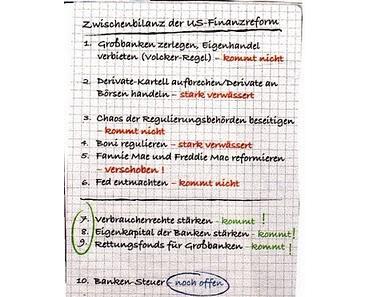 Zwischenbilanz der US-Finanzreform
1. Großbanken zerlegen, Eigenhandel
verbieten (Volcker-Regel) – kommt nicht
2. Derivate-Kartell aufbrechen/Derivate an
Börsen handeln – stark verwässert
3. Chaos der Regulierungsbehörden beseitigen
– kommt nicht
4. Boni regulieren – stark verwässert
5. Fannie Mae und Freddie Mac reformieren
– verschoben !
6. Fed entmachten – kommt nicht
7. Verbraucherrechte stärken – kommt !
8. Eigenkapital der Banken stärken – kommt!
9. Rettungsfonds für Großbanken – kommt !
10. Banken-Steuer – noch offen